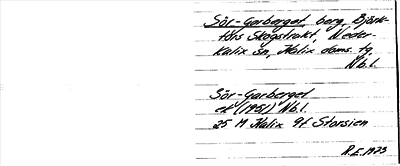 Sör-Garberget, berg, Björk-
fors Skogstrakt, Neder-
Kalix sn, Kalix doms. tg.
Nb.l.
Sör-Garberget
ek (1951) Nb.l.
25 M Kalix 9f Storsien
R.E. 1973